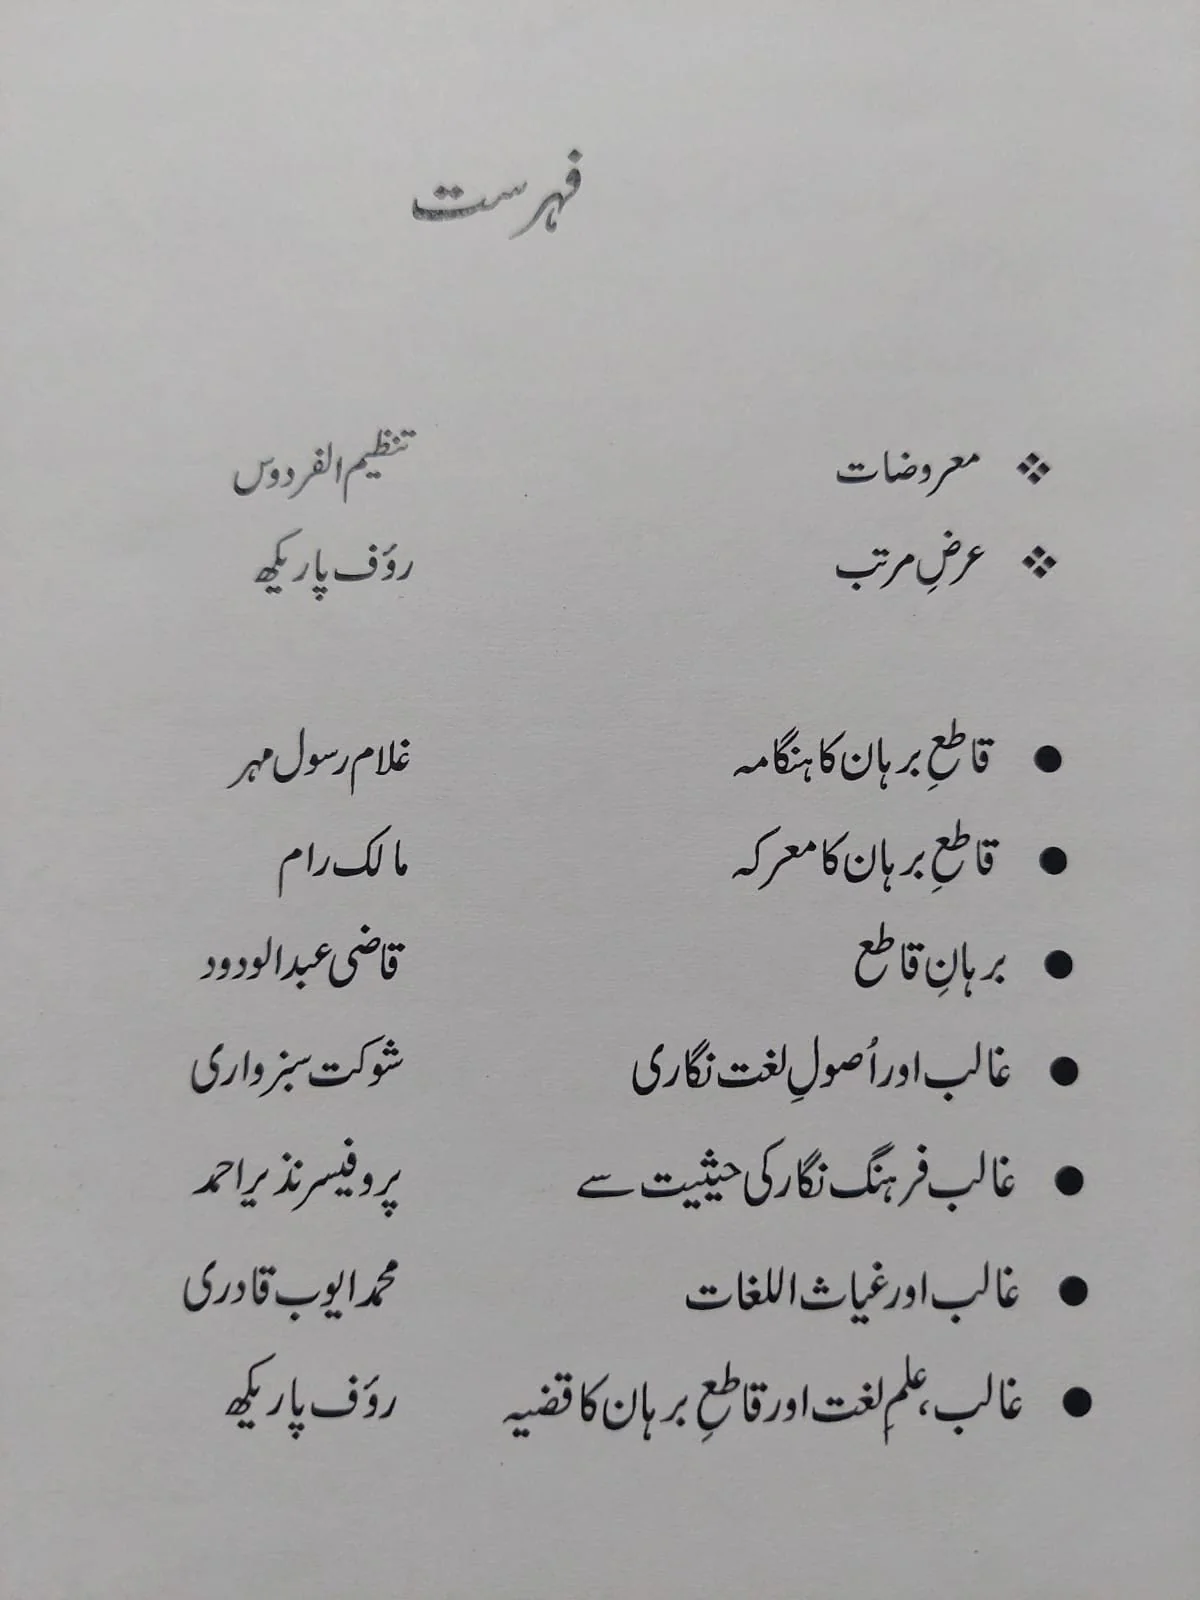 فہرست
❖ معروضات تنظیم الفردوس
❖ عرضِ مرتب رؤف پاریکھ
● قاطعِ برہان کا ہنگامہ غلام رسول مہر
● قاطعِ برہان کا معرکہ مالک رام
● برہانِ قاطع قاضی عبدالودود
● غالب اور اُصولِ لغت نگاری شوکت سبزواری
● غالب فرہنگ نگار کی حیثیت سے پروفیسر نذیر احمد
● غالب اور غیاث اللغات محمد ایوب قادری
● غالب، علمِ لغت اور قاطعِ برہان کا قضیہ رؤف پاریکھ